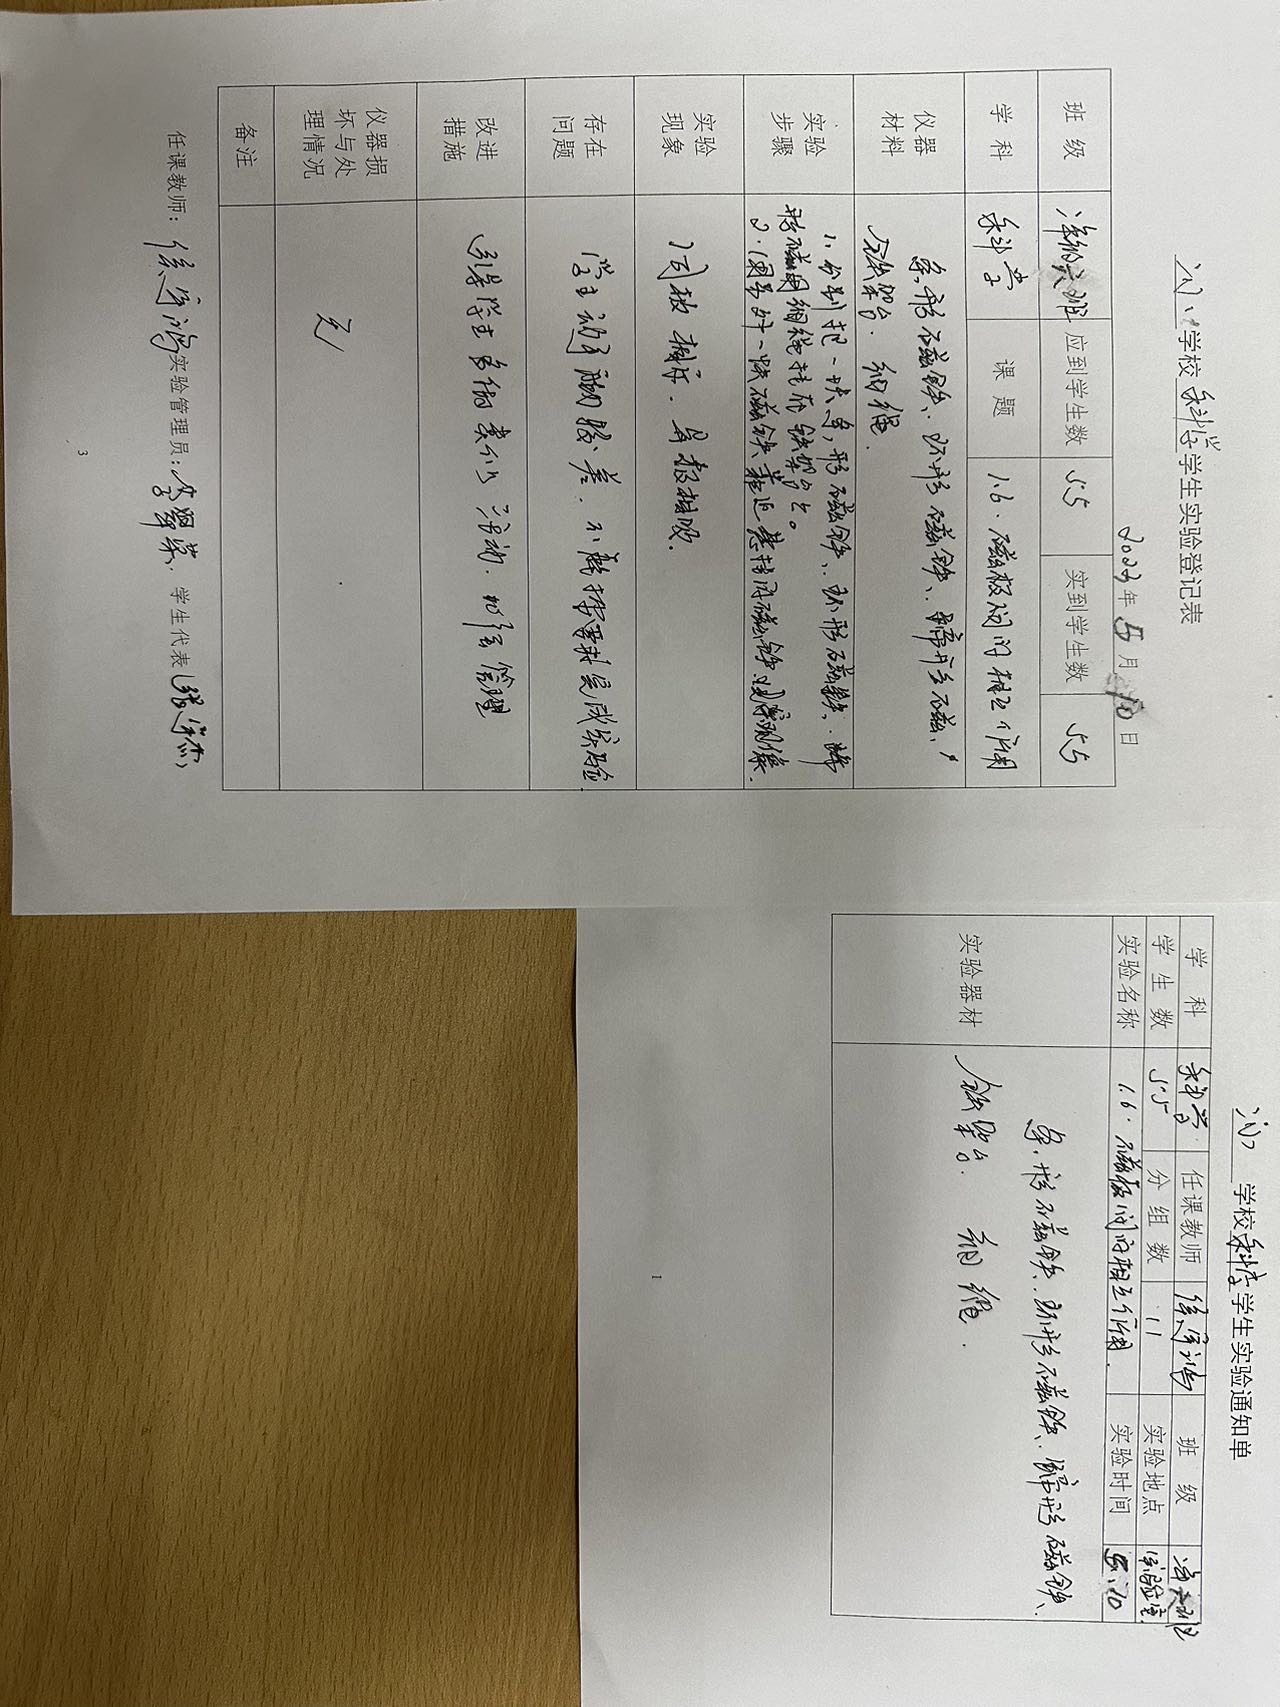 学校科学学生实验登记表
2023年5月10日
班级 六班 应到学生数 55 实到学生数 55
学科 科学 课题 1.6.磁极间的相互作用
仪器材料 条形磁铁、环形磁铁、蹄形磁铁、
铁架台. 细绳.
实验步骤 1.分别把一块条形磁铁、环形磁铁、蹄
形磁铁用细绳挂在铁架台上。
2.用另外一块磁铁靠近悬挂的磁铁,观察现象.
实验现象 同极相斥.异极相吸.
存在问题 学生动手能力较差.不能按要求完成实验
改进措施 引导学生多做类似活动.加强管理
仪器损坏与处理情况 无
备注
任课教师: 实验管理员: 学生代表
3
学校科学学生实验通知单
学科 科学 任课教师 班级 六班
学生数 55 分组数 11 实验地点 实验室
实验名称 1.6.磁极间的相互作用. 实验时间 5.10
实验器材 条形磁铁、环形磁铁、蹄形磁铁、
铁架台. 细绳.
1